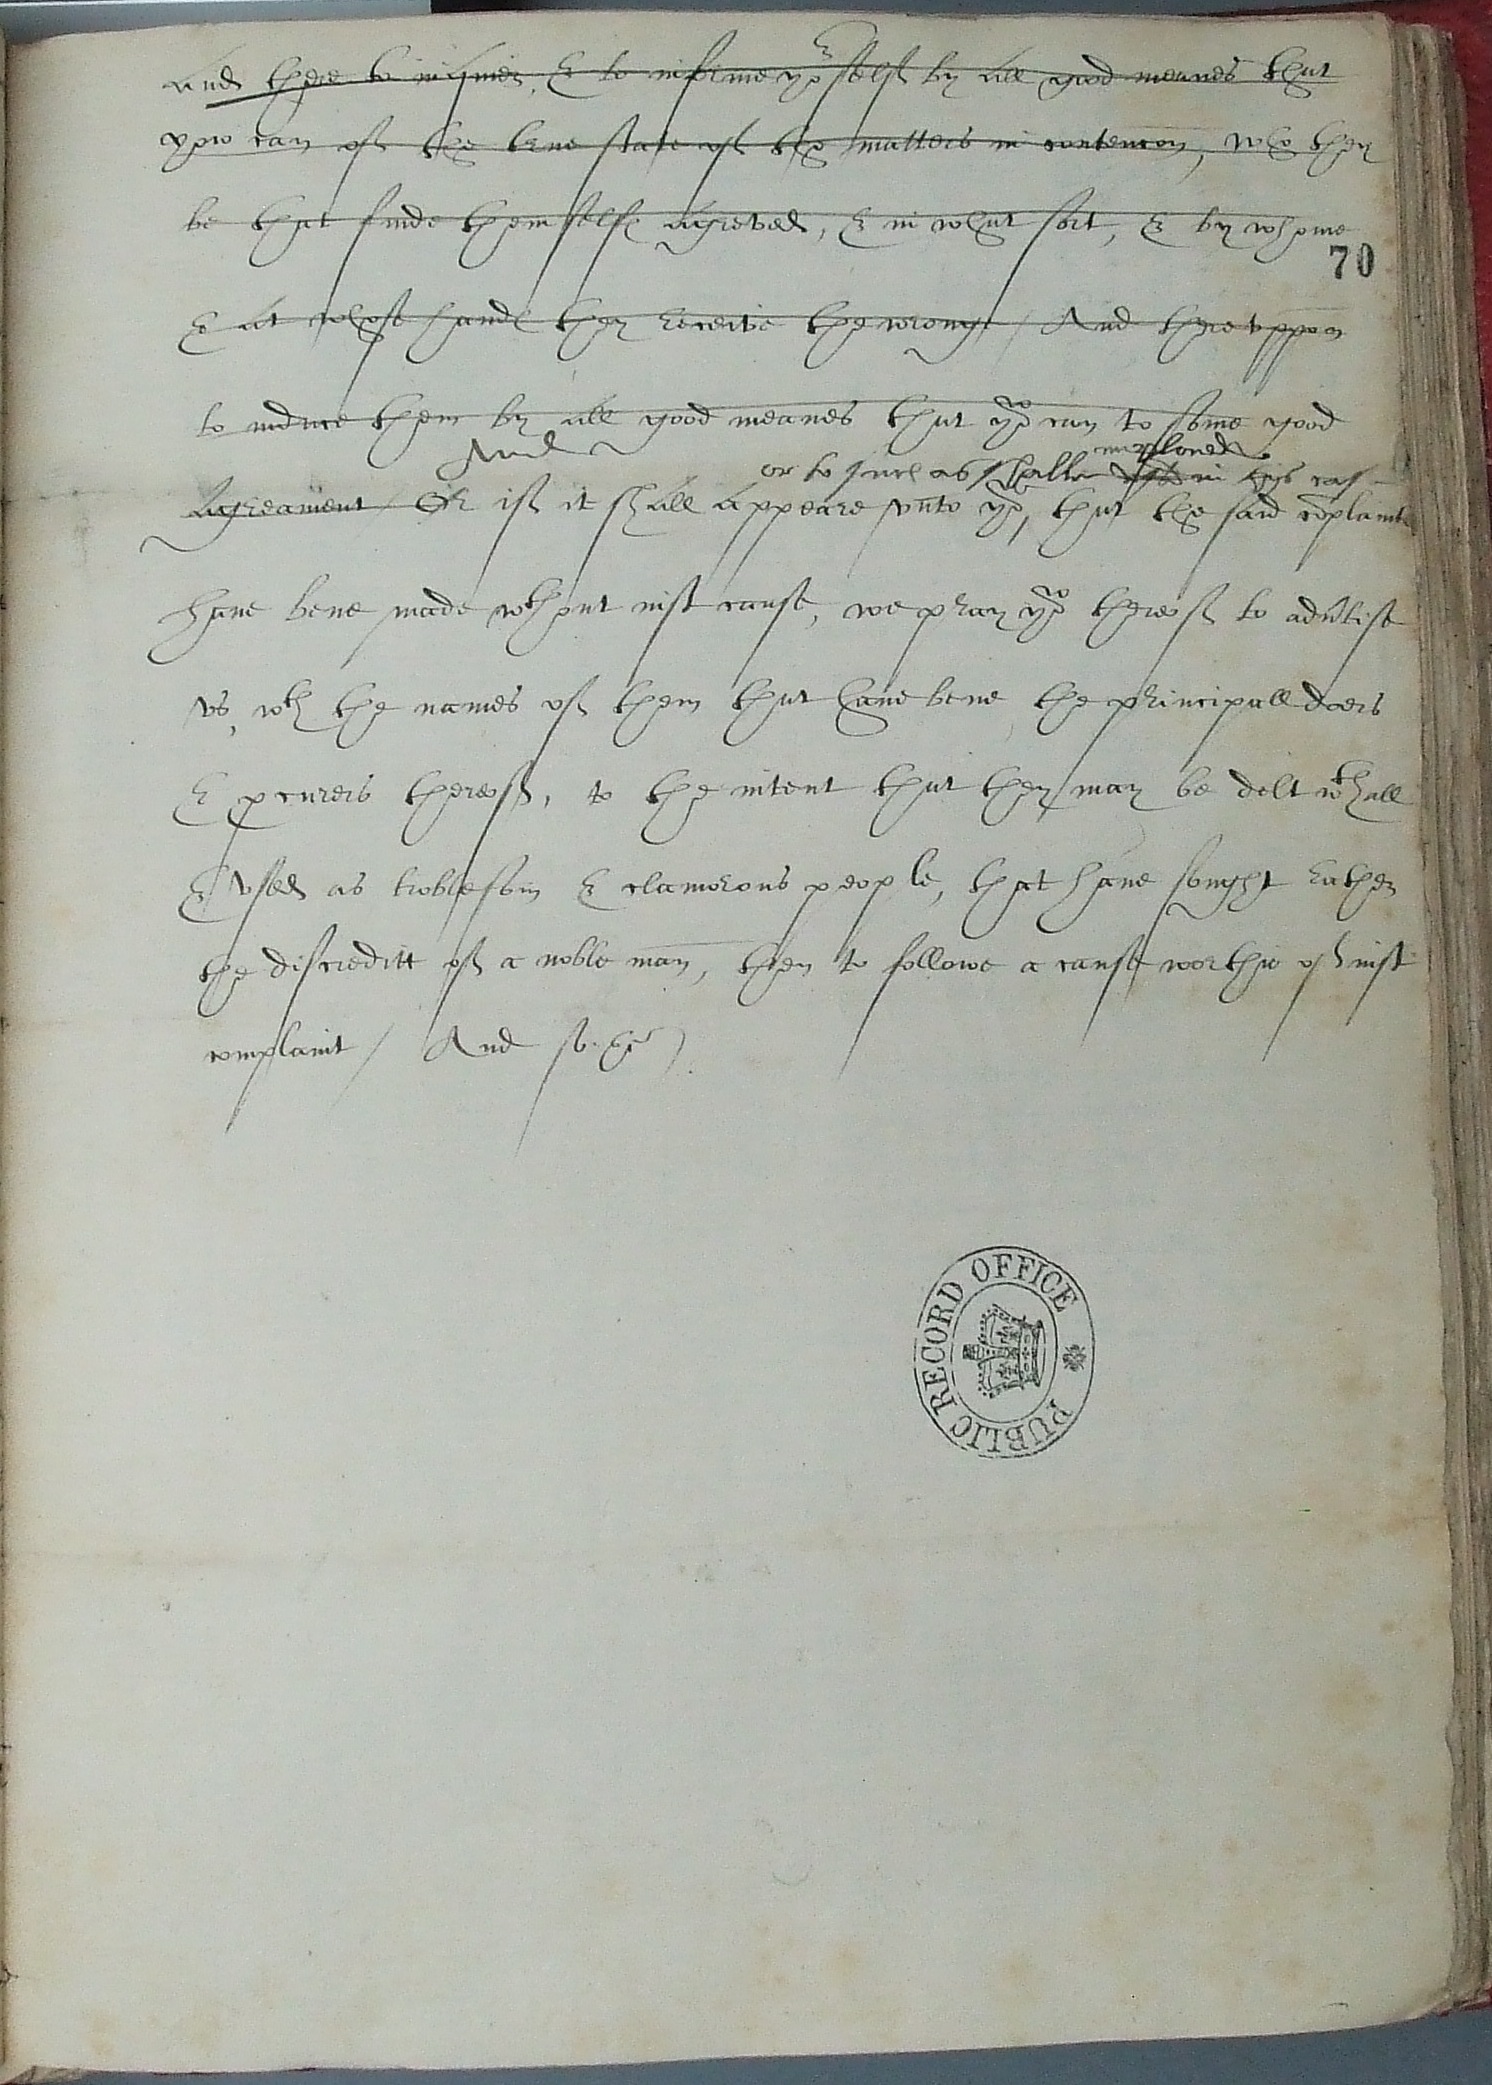 And there to inquier, & to informe yor selfe by all good meanes that
yow can of the true state of the matters in contencon, who they
be that finde them selfe agreved, & in what sort, & by whome
70
& at whose hande they receive the wronge / And thereuppon
to induce them by all good meanes that yow can to some good
And
or to such as shalbe imploied in this case
agreament / Or if it shall appeare unto yow, that the said complaintes
have bene made wthout iust cause, we pray yow thereof to advise
us, wth the names of them that have bene the principall doers
& procurers thereof, to the intent that they may be delt wthall
& used as troblesom & clamorous people, that have sought rather
the discreditt of a noble man, then to followe a cause worthie of iust
complaint / And so &c
PUBLIC RECORD OFFICE